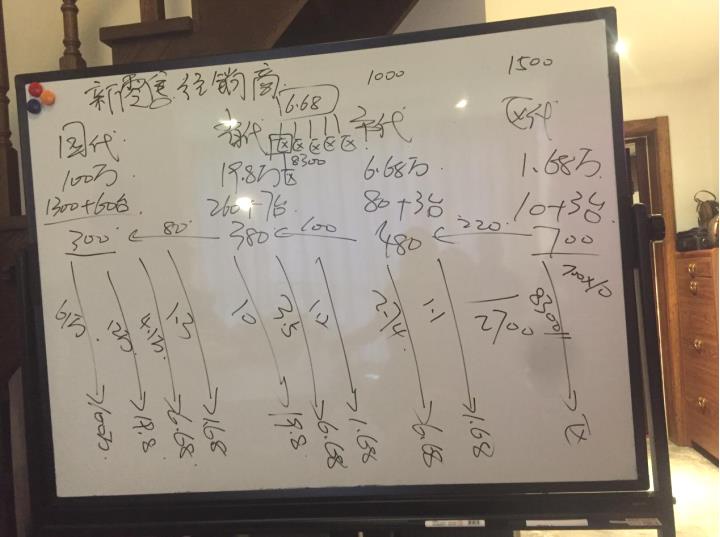 新零售经销商 6.68 1000 1500
国代 省代 市代 区代
区 区 区 区 区
100万 19.8万 区 8300 6.68万 1.68万
1300+60台 260+7台 80+3台 10+3台
300 ← 80 380 ← 100 480 ← 220 700
700×10
6万 12万 4.1万 1.3 10 3.5 1.2 2.74 1.1 2700 8300
100万 19.8 6.68 1.68 19.8 6.68 1.68 6.68 1.68 区